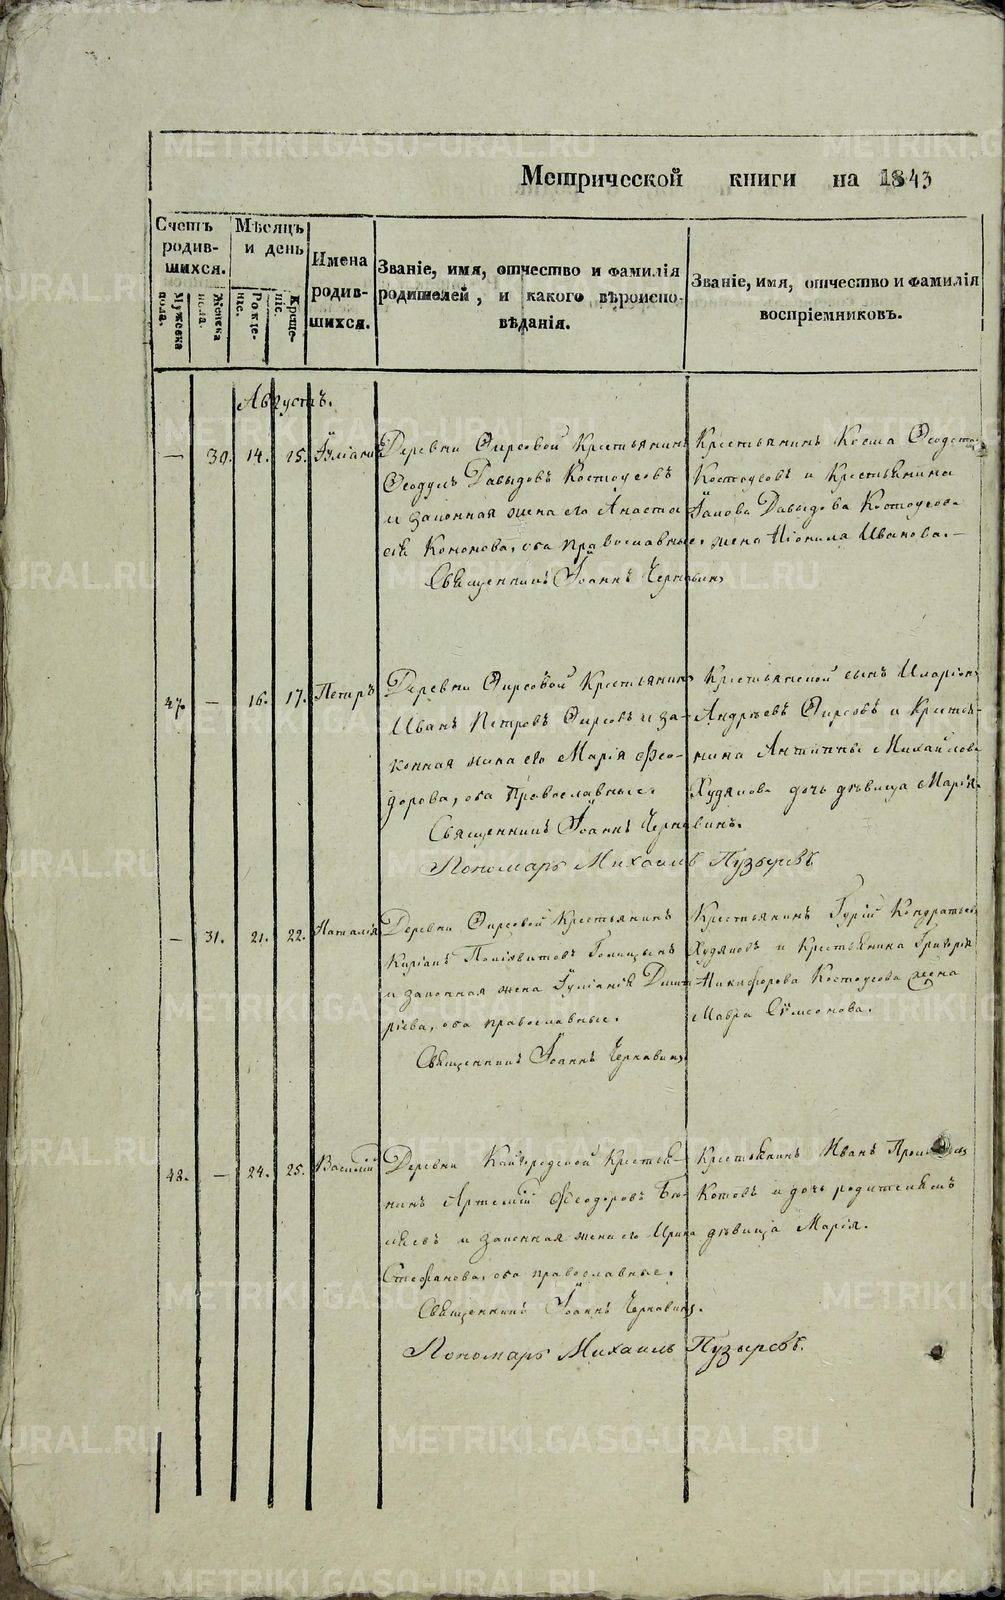 Метрической книги на 1843
Счетъ родившихся.
Мужеска пола.
Женска пола.
Мѣсяцъ и день
Рожденіе.
Крещеніе.
Имена родившихся.
Званіе, имя, отчество и фамилія
родителей, и какого вѣроиспо-
вѣданія.
Званіе, имя, отчество и фамилія
воспріемниковъ.
Августъ.
— 30. 14. 15. Іуліанія
Деревни Фирсовой Крестьянинъ
Ѳеодулъ Давыдовъ Костоусовъ
и законная жена его Анаста
сія Кононова, оба православные.
Священникъ Іоаннъ Чернавинъ
Крестьянинъ Косма
Костоусовъ и Крестьянина
Іакова Давыдова Костоусова
жена Неонила Иванова. —
47. — 16. 17. Петръ
Деревни Фирсовой Крестьянинъ
Иванъ Петровъ Фирсовъ и за-
конная жена его Марія Фео-
дорова, оба Православные.
Священникъ Іоаннъ Чернавинъ.
Пономарь Михаилъ Пузыревъ
Крестьянской сынъ Иларіонъ
Андреевъ Фирсовъ и Крестья-
нина Антипы Михайлова
Худякова дочь дѣвица Марія.
— 31. 21. 22. Наталія
Деревни Фирсовой Крестьянинъ
Киріакъ Голицынъ
и законная жена Іуліанія Димит
ріева, оба православные.
Священникъ Іоаннъ Чернавинъ
Крестьянинъ Гурій Кондратьевъ
Худяковъ и Крестьянина Григорія
Никифорова Костоусова жена
Мавра Сѵмеонова.
48. — 24. 25. Василій
Деревни Кайгородской Крестья-
нинъ Артемій Ѳеодоровъ
и законная жена его Ирина
Стефанова, оба православные.
Священникъ Іоаннъ Чернавинъ.
Пономарь Михаилъ Пузыревъ.
Крестьянинъ Иванъ
Котовъ и дочь родителямъ
дѣвица Марія.
METRIKI.GASO-URAL.RU